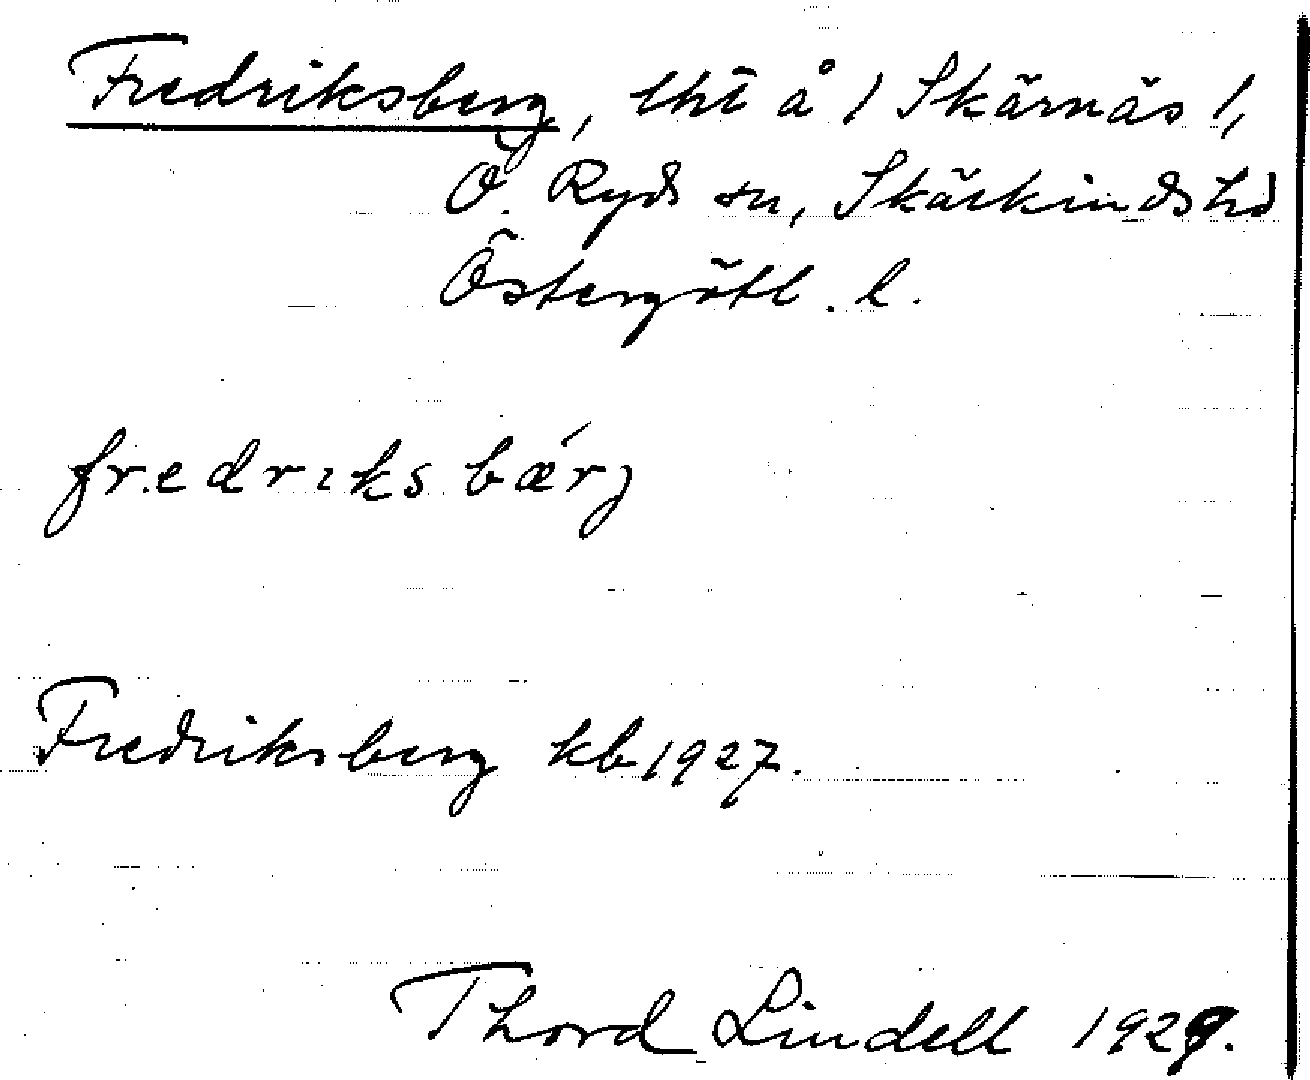 Fredriksberg, lht å 1 Skärnäs 1,
Ö. Ryds sn, Skärkinds hd
Östergötl. l.
fredrıks bǽrj
Fredriksberg kb 1927.
Thord Lindell 1929.